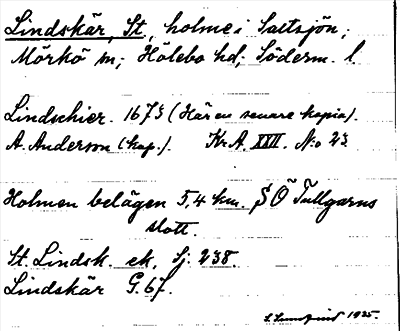 Lindskär, St., holme i Saltsjön,
Mörkö sn; Hölebo hd; Söderm. l.
Lindschier. 1673 (Här en senare kopia).
A. Anderson (kap.). Kr. A. XXII. N:o 23
Holmen belägen 5,4 km. SÖ Tullgarns
slott.
St. Lindsk. ek, Sj. 238.
Lindskär G. 67.
1925.